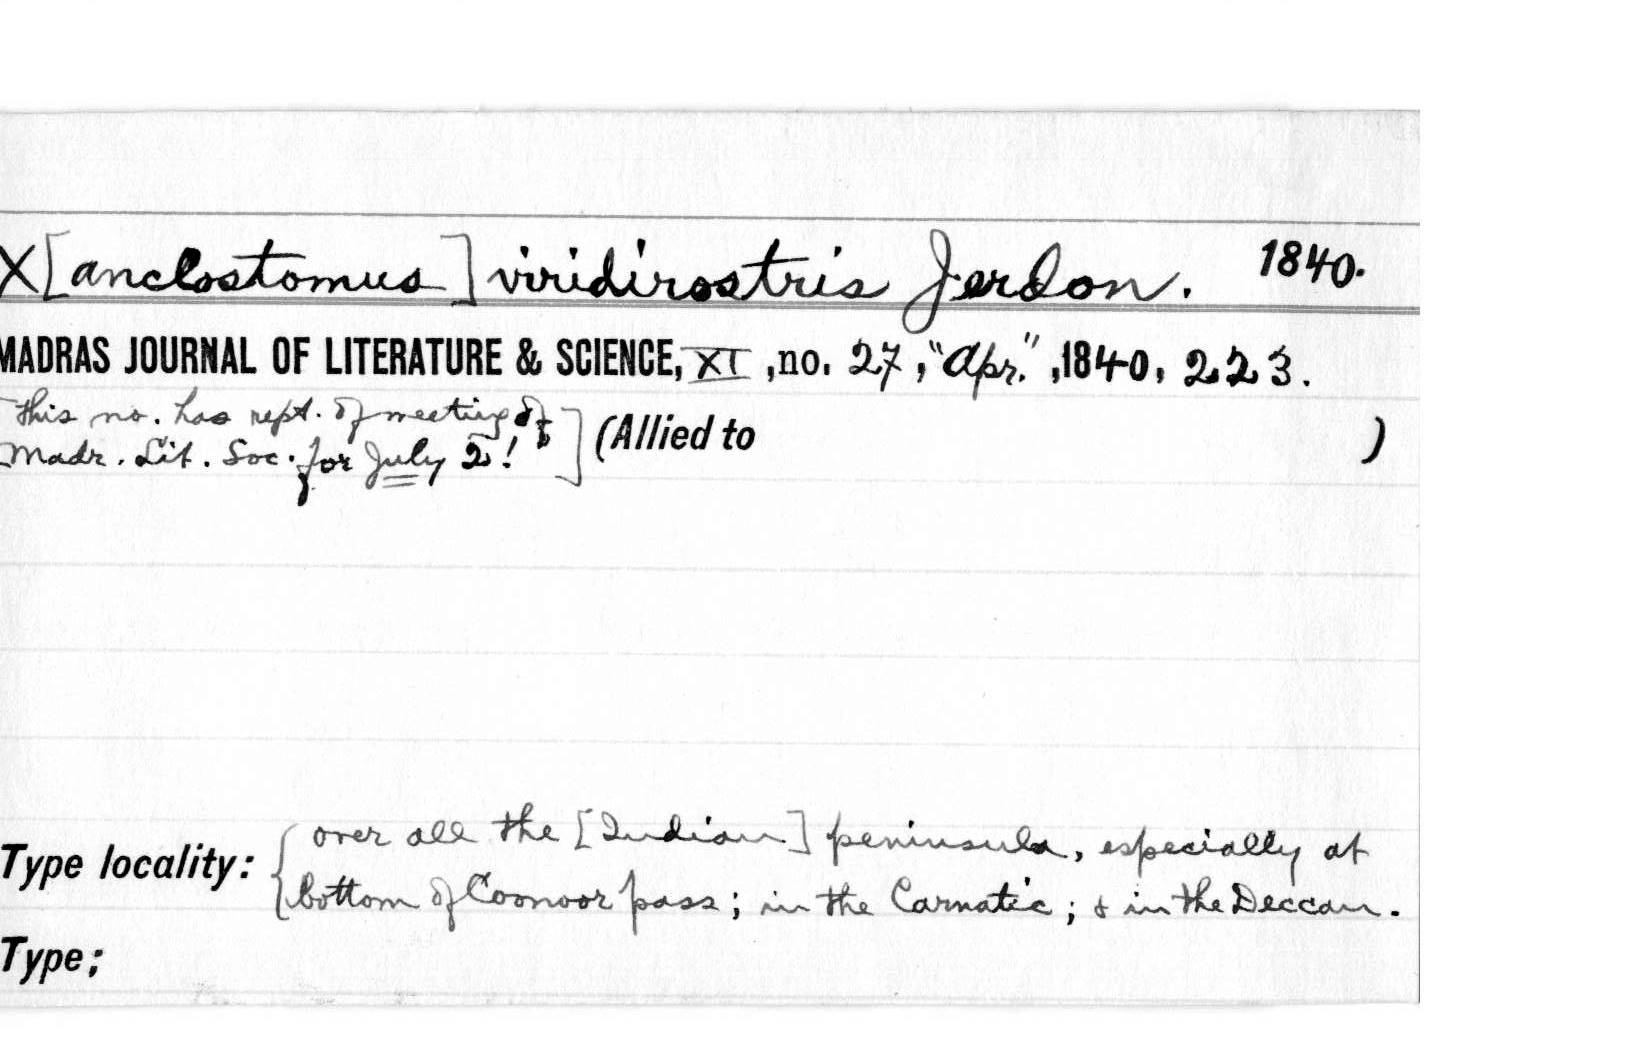 X[anclostomus] viridirostris Jerdon. 1840.
MADRAS JOURNAL OF LITERATURE & SCIENCE, XI, no. 27, "Apr.", 1840, 223.
[this no. has rept. of meeting of
Madr. Lit. Soc. for July 2!] (Allied to )
Type locality: {over all the [Indian] peninsula, especially at
bottom of Coonoor pass; in the Carnatic; & in the Deccan.
Type;